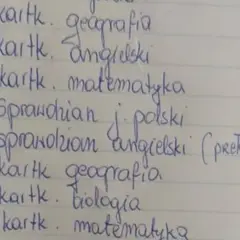 kartk. geografia
kartk. angielski
kartk. matematyka
sprawdzian j. polski
sprawdzian angielski (pret
kartk geografia
kartk. biologia
kartk. matematyka